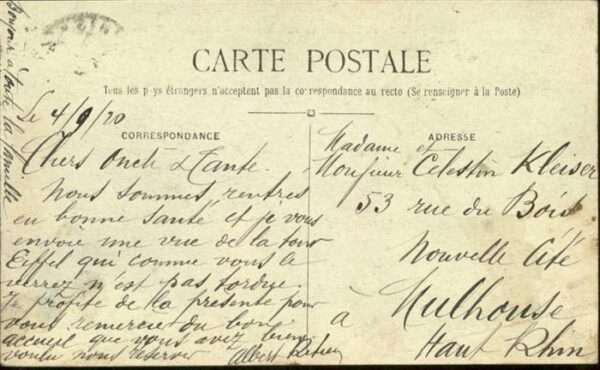 CARTE POSTALE
Tous les pays étrangers n'acceptent pas la correspondance au recto (Se renseigner à la Poste)
Le 4/9/20
CORRESPONDANCE
Chers Oncle & Tante.
Nous sommes rentrés
en bonne santé et je vous
envoie une vue de la tour
Eiffel qui comme vous le
verrez n'est pas tordue.
Je profite de la présente pour
vous remercier du bon
accueil que vous avez bien
voulu nous réserver
Albert
Bonjour à toute la famille
ADRESSE
Madame et
Monsieur Celestin Kleiser
53 rue du Bois
Nouvelle Cité
à Mulhouse
Haut Rhin